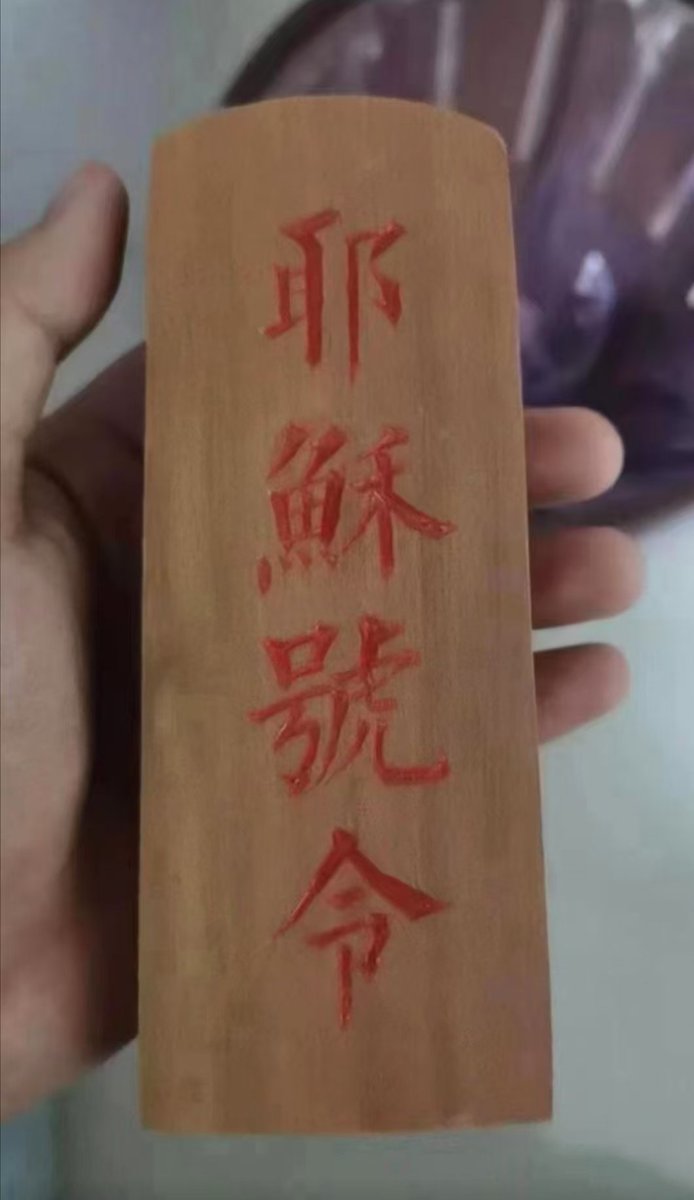 耶穌號令